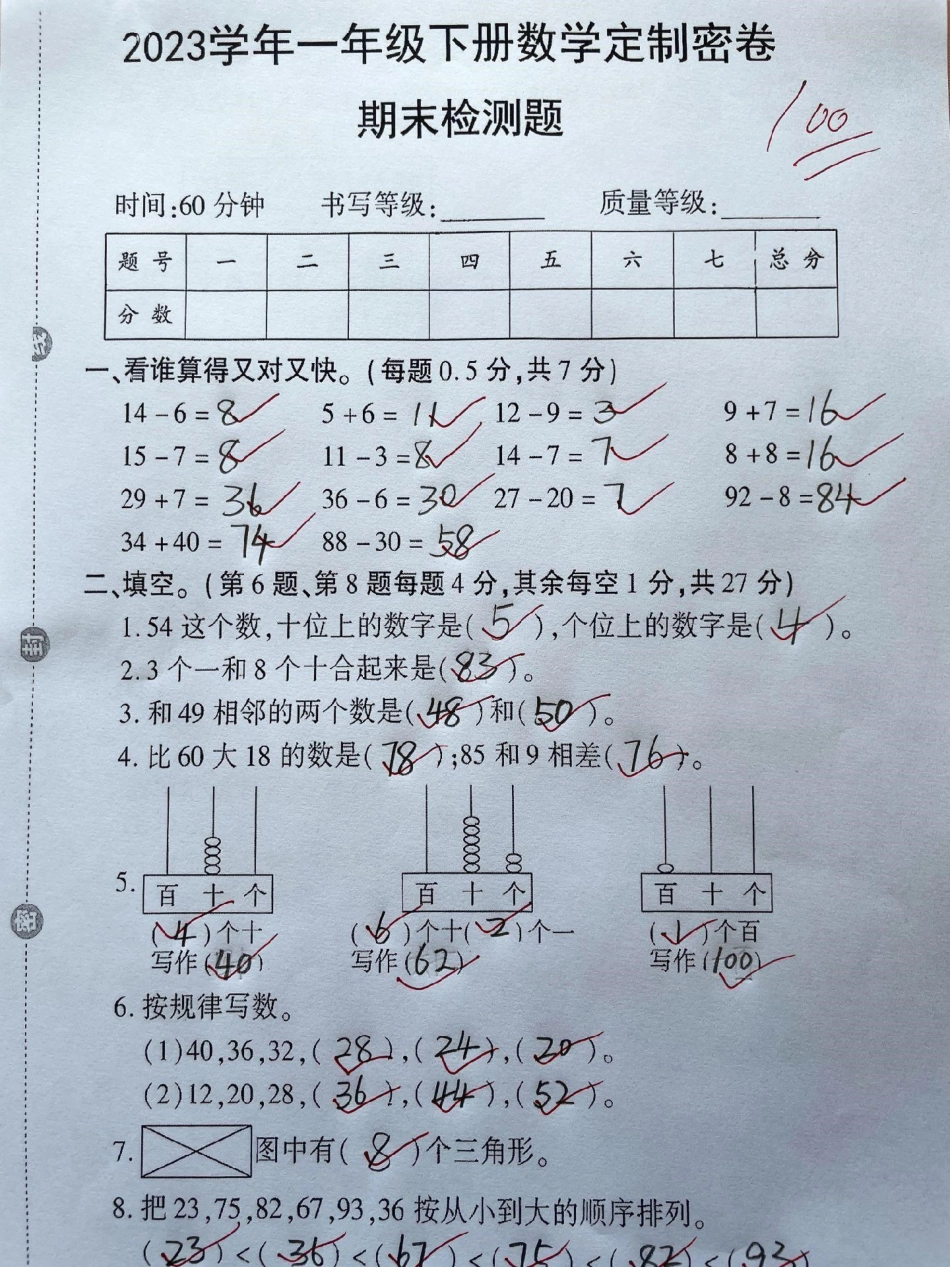 2023学年一年级下册数学定制密卷
期末检测题
100
时间:60 分钟 书写等级:______ 质量等级:______
题 号 一 二 三 四 五 六 七 总 分
分 数
一、看谁算得又对又快。(每题 0.5 分,共 7 分)
14-6=8 5+6=11 12-9=3 9+7=16
15-7=8 11-3=8 14-7=7 8+8=16
29+7=36 36-6=30 27-20=7 92-8=84
34+40=74 88-30=58
二、填空。(第 6 题、第 8 题每题 4 分,其余每空 1 分,共 27 分)
1.54 这个数,十位上的数字是(5),个位上的数字是(4)。
2.3 个一和 8 个十合起来是(83)。
3.和 49 相邻的两个数是(48)和(50)。
4.比 60 大 18 的数是(78);85 和 9 相差(76)。
5. 百 十 个 百 十 个 百 十 个
(4)个十 (6)个十(2)个一 (1)个百
写作(40) 写作(62) 写作(100)
6.按规律写数。
(1)40,36,32,(28),(24),(20)。
(2)12,20,28,(36),(44),(52)。
7. 图中有(8)个三角形。
8.把 23,75,82,67,93,36 按从小到大的顺序排列。
(23)<(36)<(67)<(75)<(82)<(93)
线
封
密